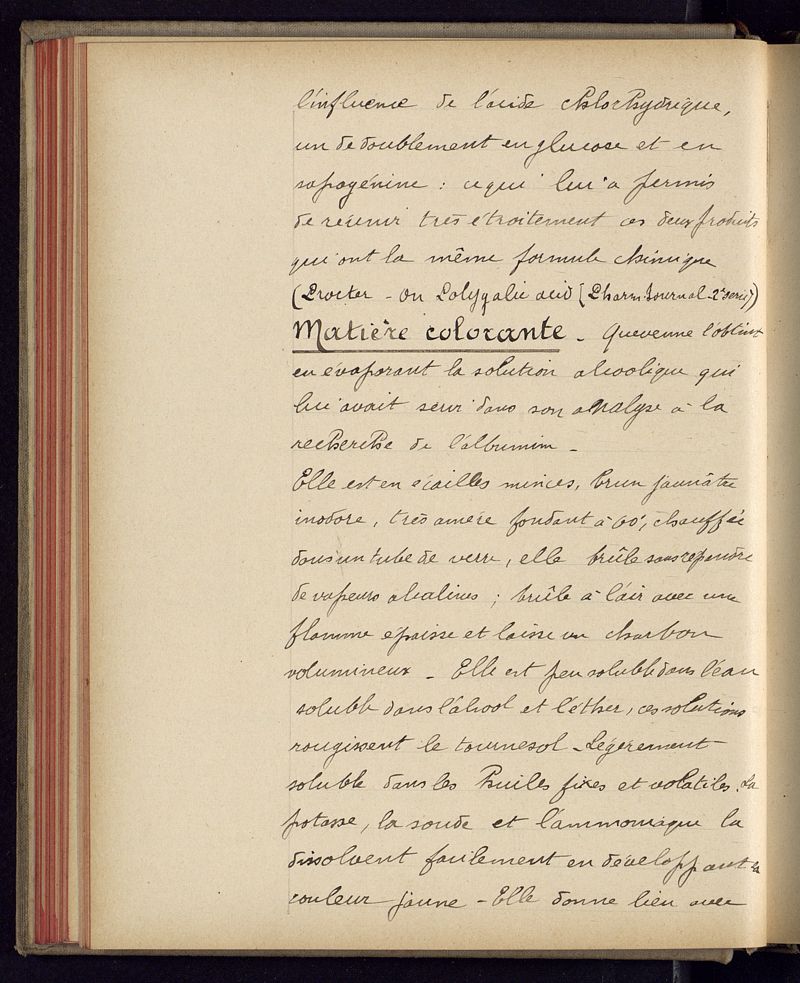 l'influence de l'acide chlorhydrique,
un dedoublement en glucose et en
sapogénine : ce qui lui a permis
de réunir très étroitement ces deux produits
qui ont la même formule chimique
(Procter - On Polygalic acid (Pharm Journal - 2e serie))
Matière colorante - Quevenne l'obtint
en évaporant la solution alcoolique qui
lui avait servi dans son analyse à la
recherche de l'albumine -
Elle est en écailles minces, brun jaunâtre
inodore, très amère fondant à 60°, chauffée
dans un tube de verre, elle brûle sans répandre
de vapeurs alcalines ; brûle à l'air avec une
flamme épaisse et laisse un charbon
volumineux - Elle est peu soluble dans l'eau
soluble dans l'alcool et l'éther, ces solutions
rougissent le tournesol - Légèrement
soluble dans les huiles fixes et volatiles. La
potasse, la soude et l'ammoniaque la
dissolvent facilement en développant la
couleur jaune - Elle donne lieu avec